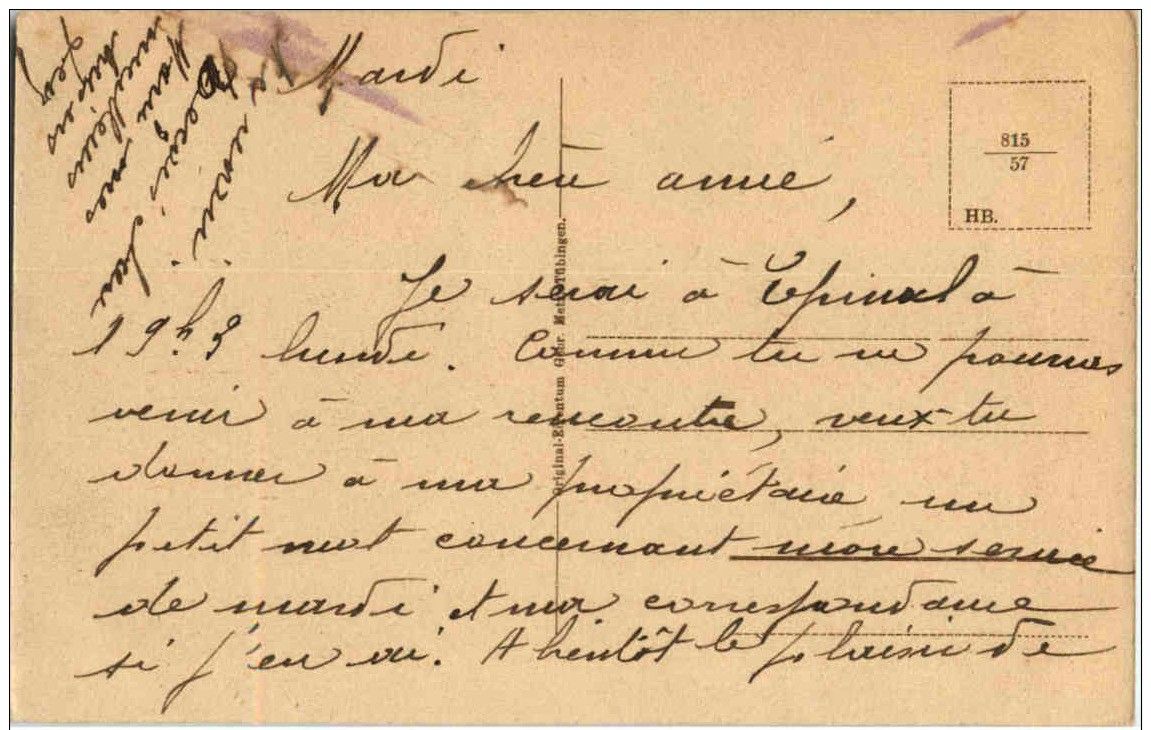 Mardi
Ma chère amie,
Je serai à Epinal à
19h3 lundi. Comme tu ne pourras
venir à ma rencontre, veux-tu
donner à ma propriétaire un
petit mot concernant mon service
de mardi et ma correspondance
si j'en ai. A bientôt le plaisir de
815
57
HB.
Original-Eigentum Gebr. Metz, Tübingen.